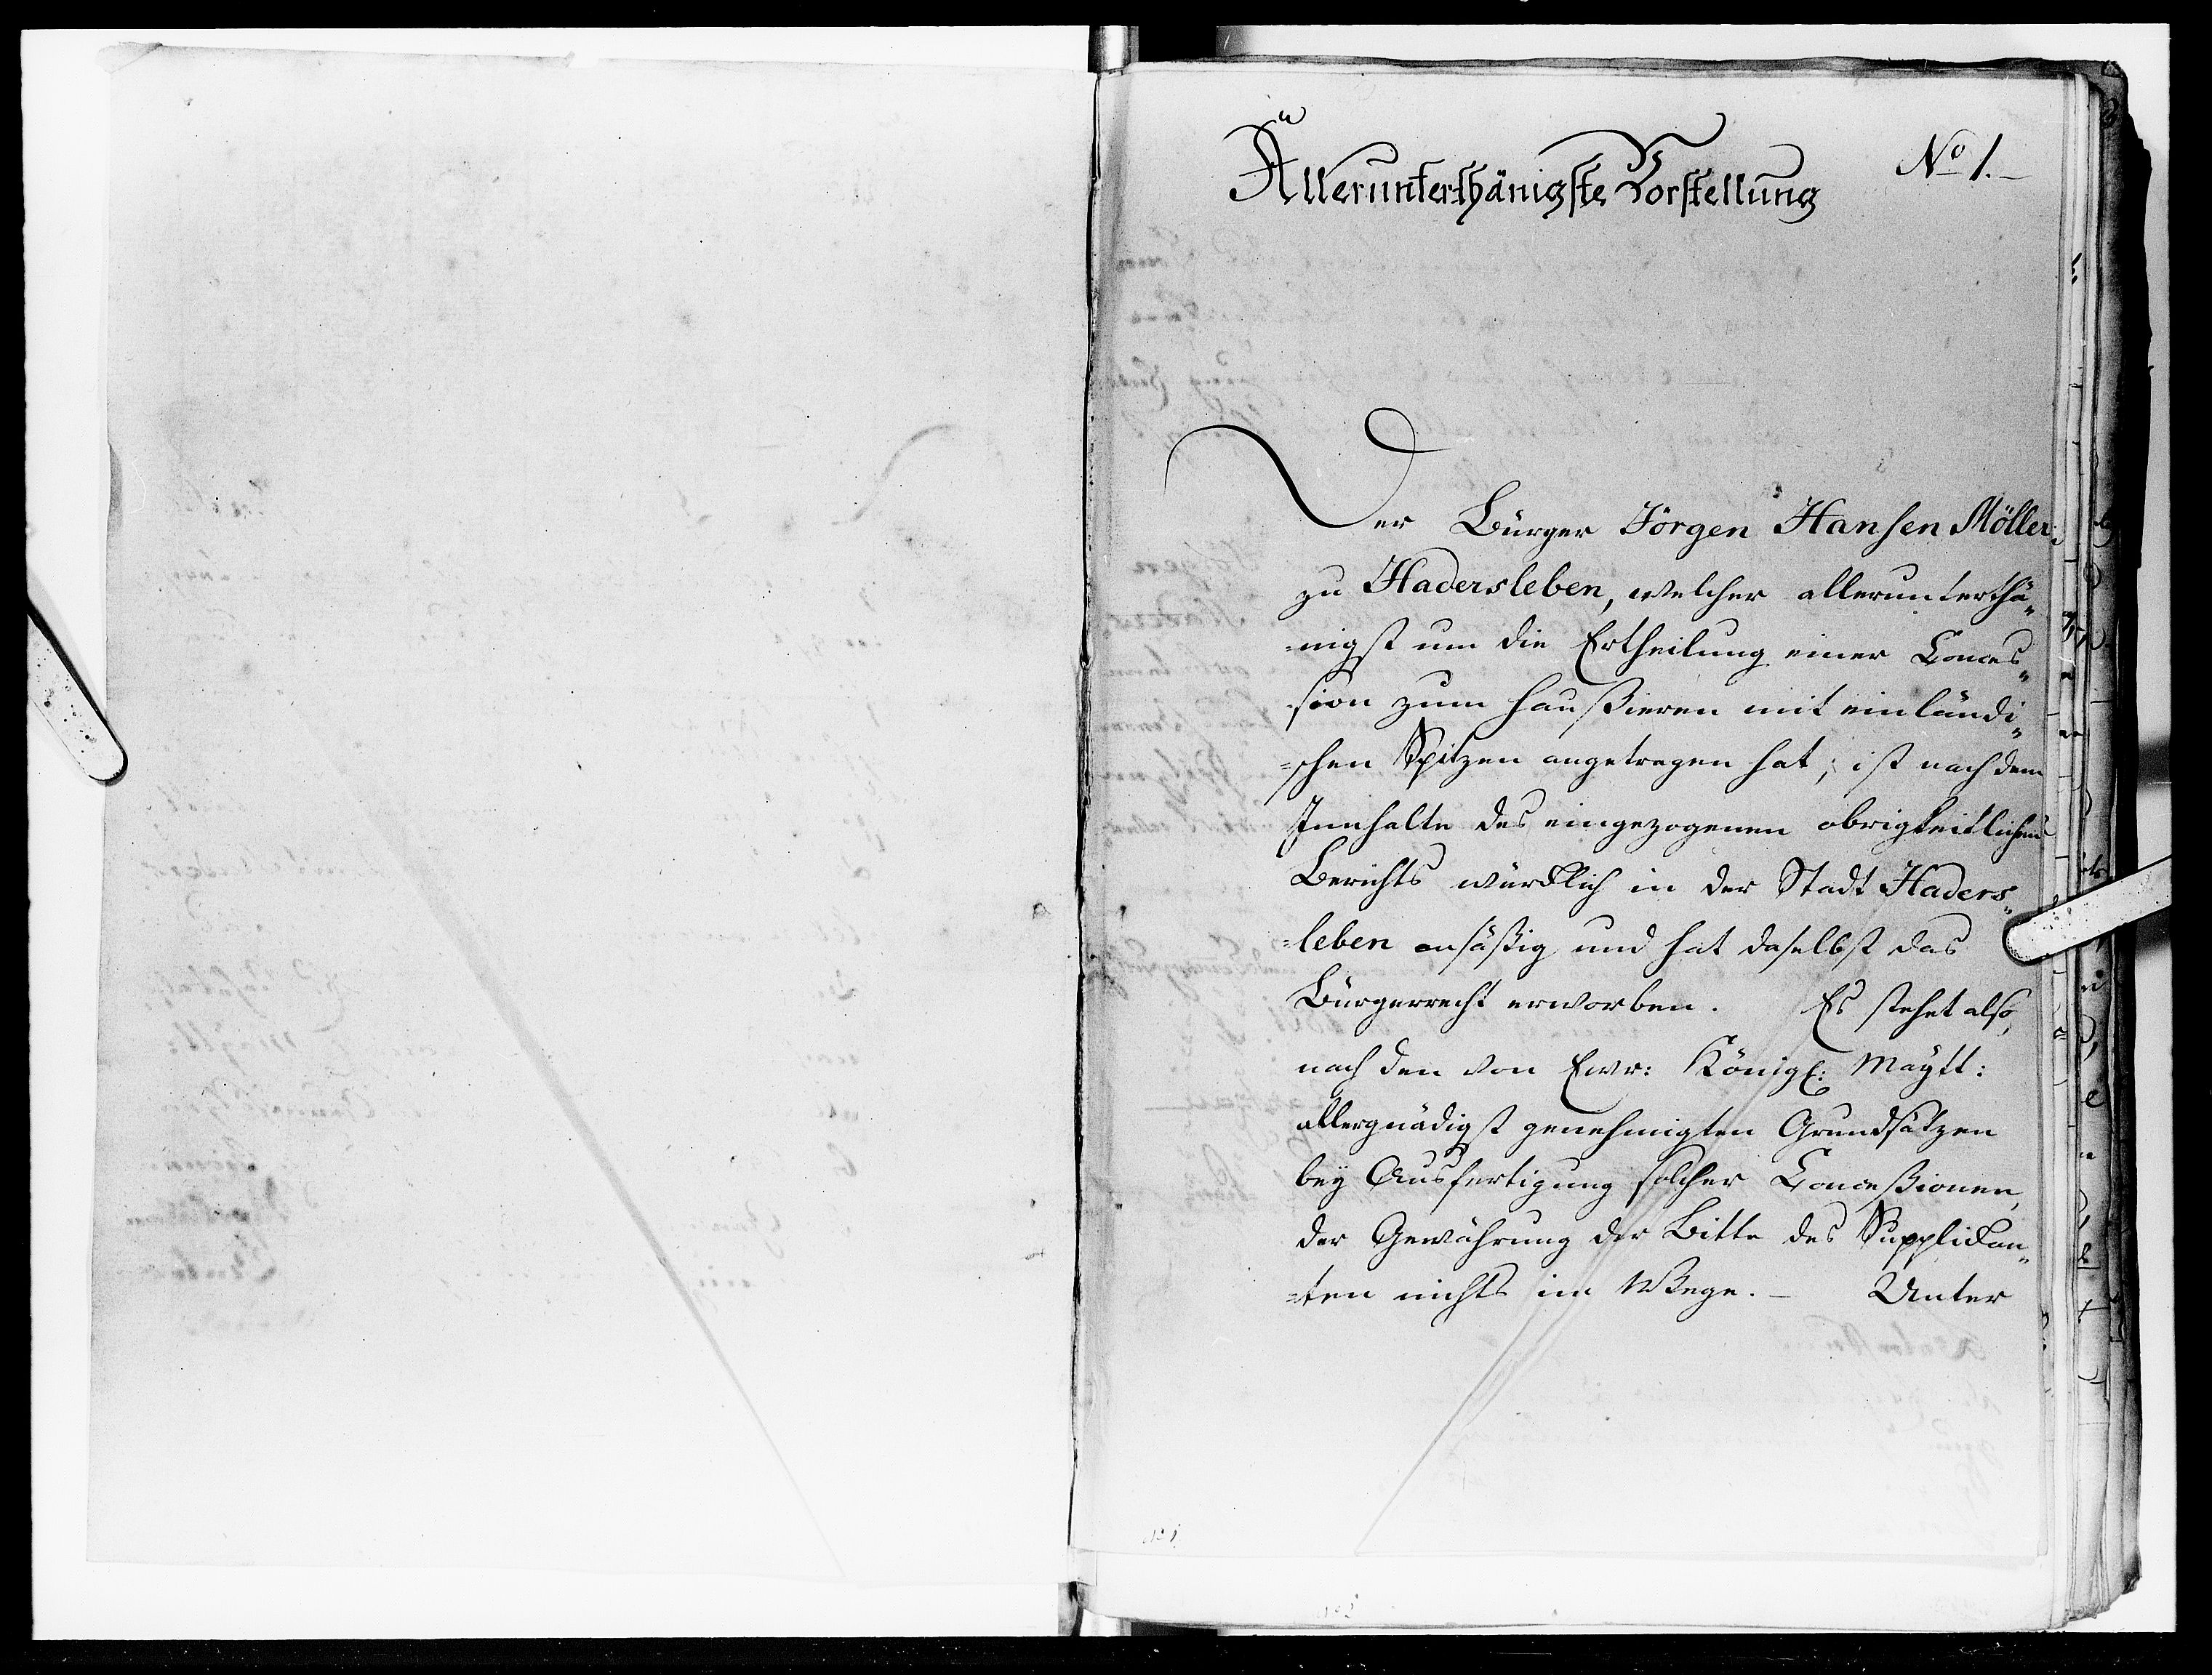 Allerunterthänigste Vorstellung
No 1.
Der Bürger Jörgen Hansen Möller
zu Hadersleben, welcher allerunterthä„
nigst um die Ertheilung einer Conces„
sion zum haußieren mit einländi„
schen Spitzen angetragen hat, ist nach dem
Innhalte des eingezogenen obrigkeitlichen
Berichts würcklich in der Stadt Haders„
leben ansäßig und hat daselbst das
Bürgerrecht erworben. Es stehet also,
nach den von Ewr: Königl: Maytt:
allergnädigst genehmigten Grundsätzen
bey Ausfertigung solcher Conceßionen,
der Gewährung der Bitte des Supplican„
ten nichts im Wege. – Unter